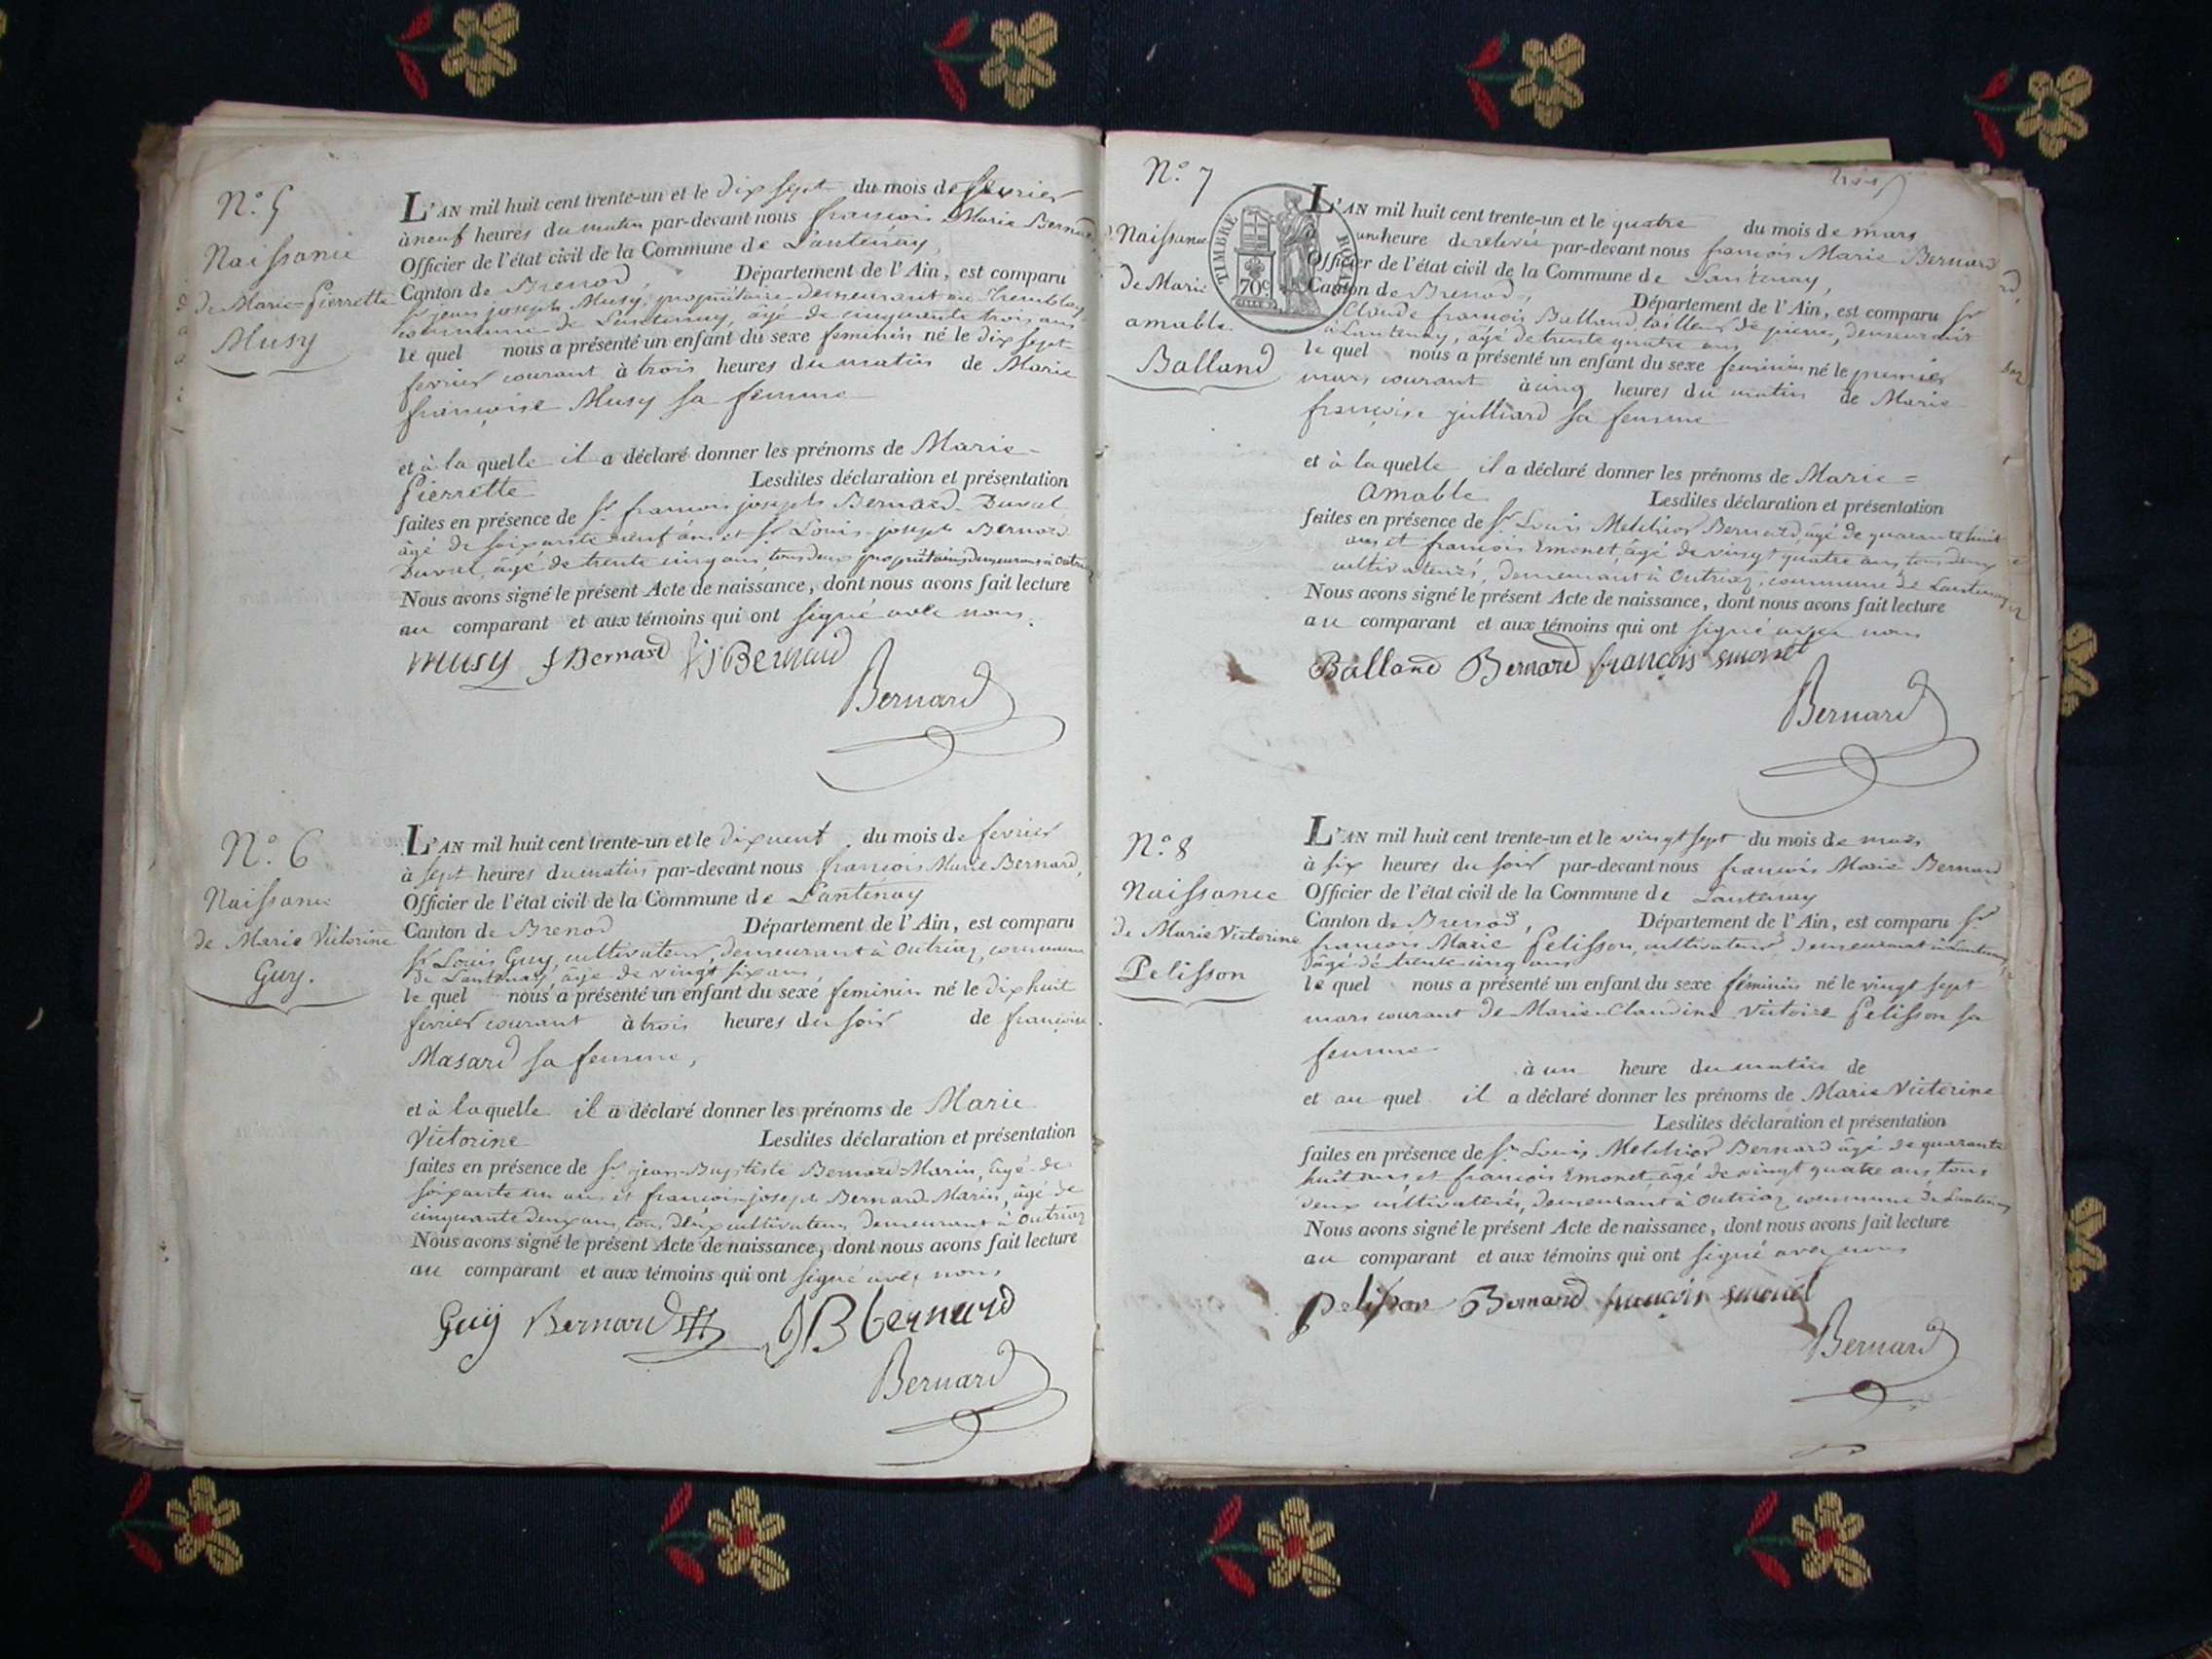 N.º 5
Naissance
de Marie=Pierrette
Musy
L'AN mil huit cent trente-un et le dix sept du mois de fevrier
à neuf heures du matin par-devant nous françois Marie Bernard
Officier de l'état civil de la Commune de Lantenay,
Canton de Brenod, Département de l'Ain, est comparu
Sr jean joseph Musy, propriétaire demeurant au Tremblay,
commune de Lantenay, âgé de cinquante trois ans
le quel nous a présenté un enfant du sexe feminin né le dix sept
fevrier courant à trois heures du matin de Marie
françoise Musy sa femme
et à la quelle il a déclaré donner les prénoms de Marie-
Pierrette Lesdites déclaration et présentation
faites en présence de Sr francois joseph Bernard-Duval
âgé de soixante neuf ans et Sr Louis joseph Bernard
Duval, âgé de trente cinq ans, tous deux propriétaires demeurans à Outriaz
Nous avons signé le présent Acte de naissance, dont nous avons fait lecture
au comparant et aux témoins qui ont signé avec nous.
Musy f Bernard Bernard
Bernard
N.º 6
Naissance
de Marie Victorine
Guy.
L'AN mil huit cent trente-un et le dix neuf du mois de fevrier
à sept heures du matin par-devant nous francois Marie Bernard,
Officier de l'état civil de la Commune de Lantenay
Canton de Brenod Département de l'Ain, est comparu
Sr Louis Guy, cultivateur, demeurant à Outriaz, commune
de Lantenay, âgé de vingt six ans,
le quel nous a présenté un enfant du sexe feminin né le dix huit
fevrier courant à trois heures du soir de françoise
Masard sa femme,
et à laquelle il a déclaré donner les prénoms de Marie
Victorine Lesdites déclaration et présentation
faites en présence de Sr jean-Baptiste Bernard-Marin, âgé de
soixante un ans et francois-joseph Bernard-Marin, âgé de
cinquante deux ans, tous deux cultivateurs demeurant à Outriaz
Nous avons signé le présent Acte de naissance, dont nous avons fait lecture
au comparant et aux témoins qui ont signé avec nous
Guy Bernard JB bernard
Bernard
N.º 7
Naissance
de Marie
amable
Balland
TIMBRE ROYAL
70c
L'AN mil huit cent trente-un et le quatre du mois de mars
une heure de relevée par-devant nous françois Marie Bernard
Officier de l'état civil de la Commune de Lantenay,
Canton de Brenod, Département de l'Ain, est comparu Sr
Claude francois Balland, tailleur de pierres, demeurant
à Lantenay, âgé de trente quatre ans
le quel nous a présenté un enfant du sexe feminin né le premier
mars courant à cinq heures du matin de Marie
françoise julliard sa femme
et à laquelle il a déclaré donner les prénoms de Marie=
Amable Lesdites déclaration et présentation
faites en présence de Sr Louis Melchior Bernard, âgé de quarante huit
ans et françois Emonet, âgé de vingt quatre ans, tous deux
cultivateurs, demeurant à Outriaz, commune de Lantenay
Nous avons signé le présent Acte de naissance, dont nous avons fait lecture
au comparant et aux témoins qui ont signé avec nous
Balland Bernard françois Emonet
Bernard
N.º 8
Naissance
de Marie Victorine
Pelisson
L'AN mil huit cent trente-un et le vingt sept du mois de mars
à six heures du soir par-devant nous françois Marie Bernard
Officier de l'état civil de la Commune de Lantenay
Canton de Brenod, Département de l'Ain, est comparu Sr
francois Marie Pelisson, cultivateur, demeurant à Lantenay,
âgé de trente cinq ans
le quel nous a présenté un enfant du sexe féminin né le vingt sept
mars courant de Marie-Claudine Victoire Pelisson sa
femme
à un heure du matin de
et au quel il a déclaré donner les prénoms de Marie Victorine
Lesdites déclaration et présentation
faites en présence de Sr Louis Melchior Bernard âgé de quarante
huit ans et françois Emonet, âgé de vingt quatre ans, tous
deux cultivateurs, demeurant à Outriaz commune de Lantenay
Nous avons signé le présent Acte de naissance, dont nous avons fait lecture
au comparant et aux témoins qui ont signé avec nous
Pelisson Bernard françois Emonet
Bernard